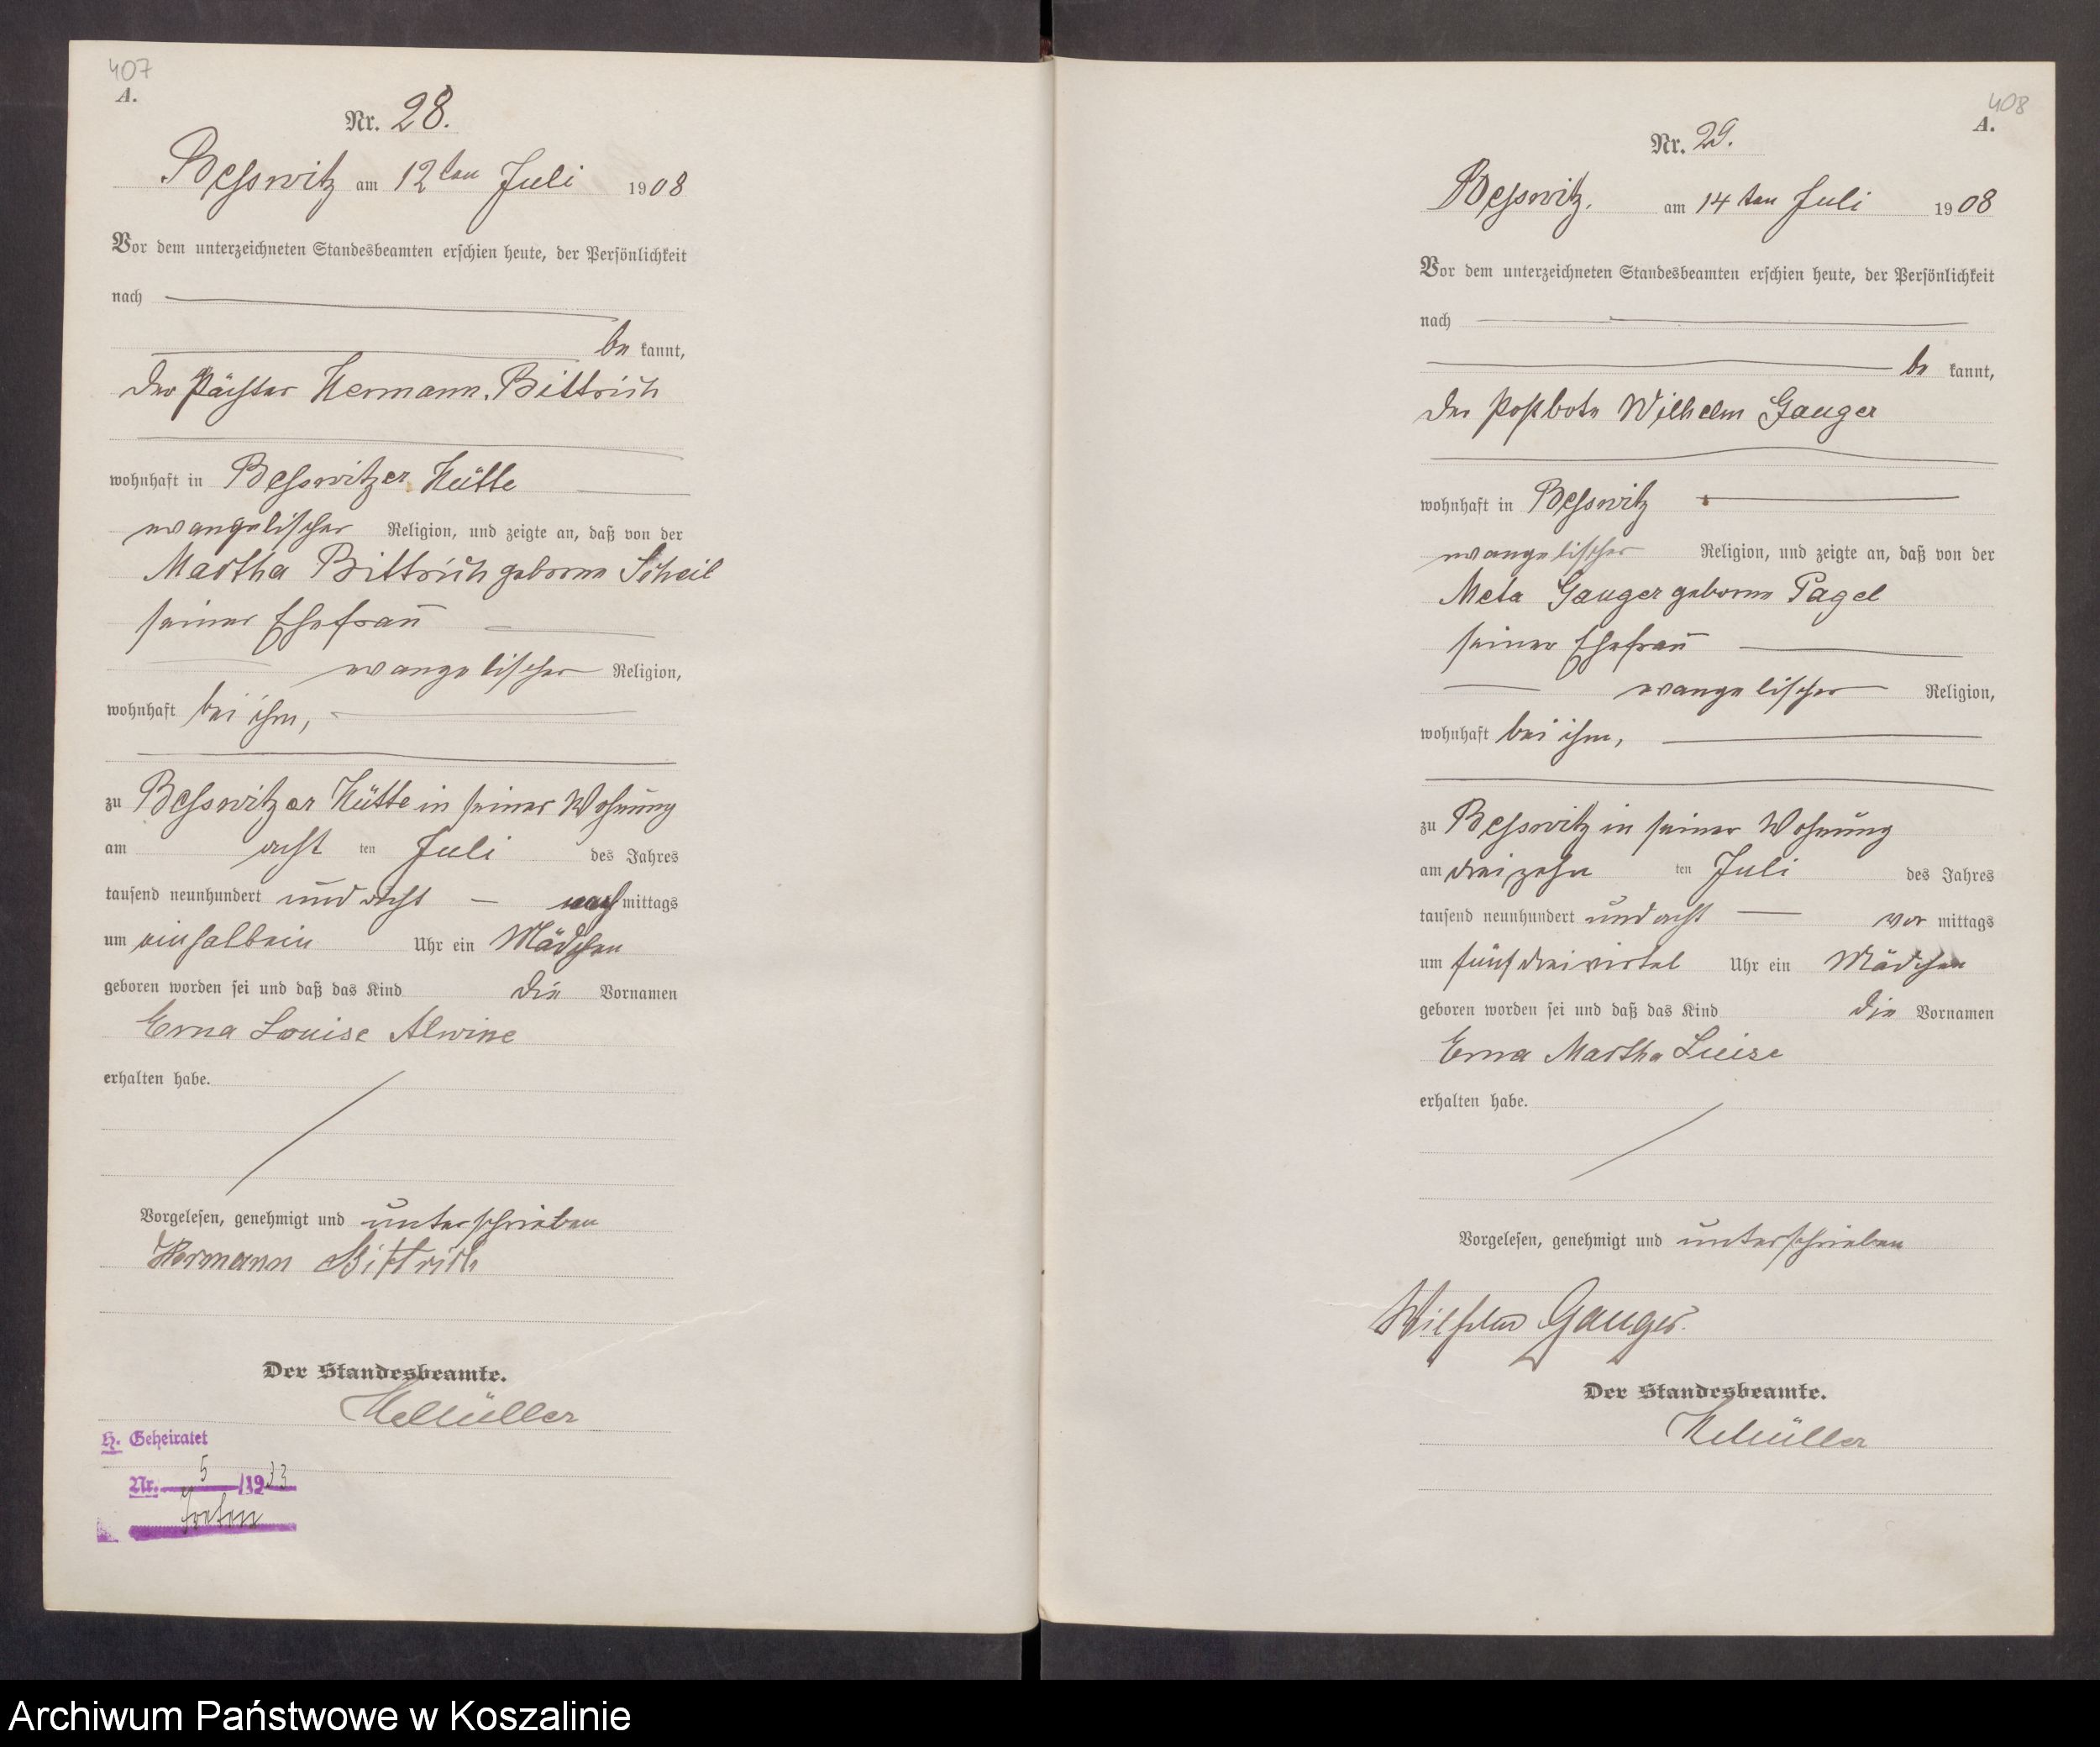 407
A.
Nr. 28.
Besswitz am 12ten Juli 1908
Vor dem unterzeichneten Standesbeamten erschien heute, der Persönlichkeit
nach
be kannt,
der Pächter Hermann Bittrich
wohnhaft in Besswitzer Hütte
evangelischer Religion, und zeigte an, daß von der
Martha Bittrich geborene Scheil
seiner Ehefrau
evangelischer Religion,
wohnhaft bei ihm,
zu Besswitzer Hütte in seiner Wohnung
am acht ten Juli des Jahres
tausend neunhundert und acht — nachmittags
um einhalbein Uhr ein Mädchen
geboren worden sei und daß das Kind die Vornamen
Erna Louise Alwine
erhalten habe.
Vorgelesen, genehmigt und unterschrieben
Hermann Bittrich
Der Standesbeamte.
H. Geheiratet
Nr. 5 /1933
408
A.
Nr. 29.
Besswitz. am 14ten Juli 1908
Vor dem unterzeichneten Standesbeamten erschien heute, der Persönlichkeit
nach
be kannt,
der Postbote Wilhelm Gauger
wohnhaft in Besswitz
evangelischer Religion, und zeigte an, daß von der
Meta Gauger geborne Pagel
seiner Ehefrau
evangelischer Religion,
wohnhaft bei ihm,
zu Besswitz in seiner Wohnung
am dreizehn ten Juli des Jahres
tausend neunhundert und acht — vor mittags
um fünfdreivirtel Uhr ein Mädchen
geboren worden sei und daß das Kind die Vornamen
Erna Martha Luise
erhalten habe.
Vorgelesen, genehmigt und unterschrieben
Wilhelm Gauger.
Der Standesbeamte.
Archiwum Państwowe w Koszalinie